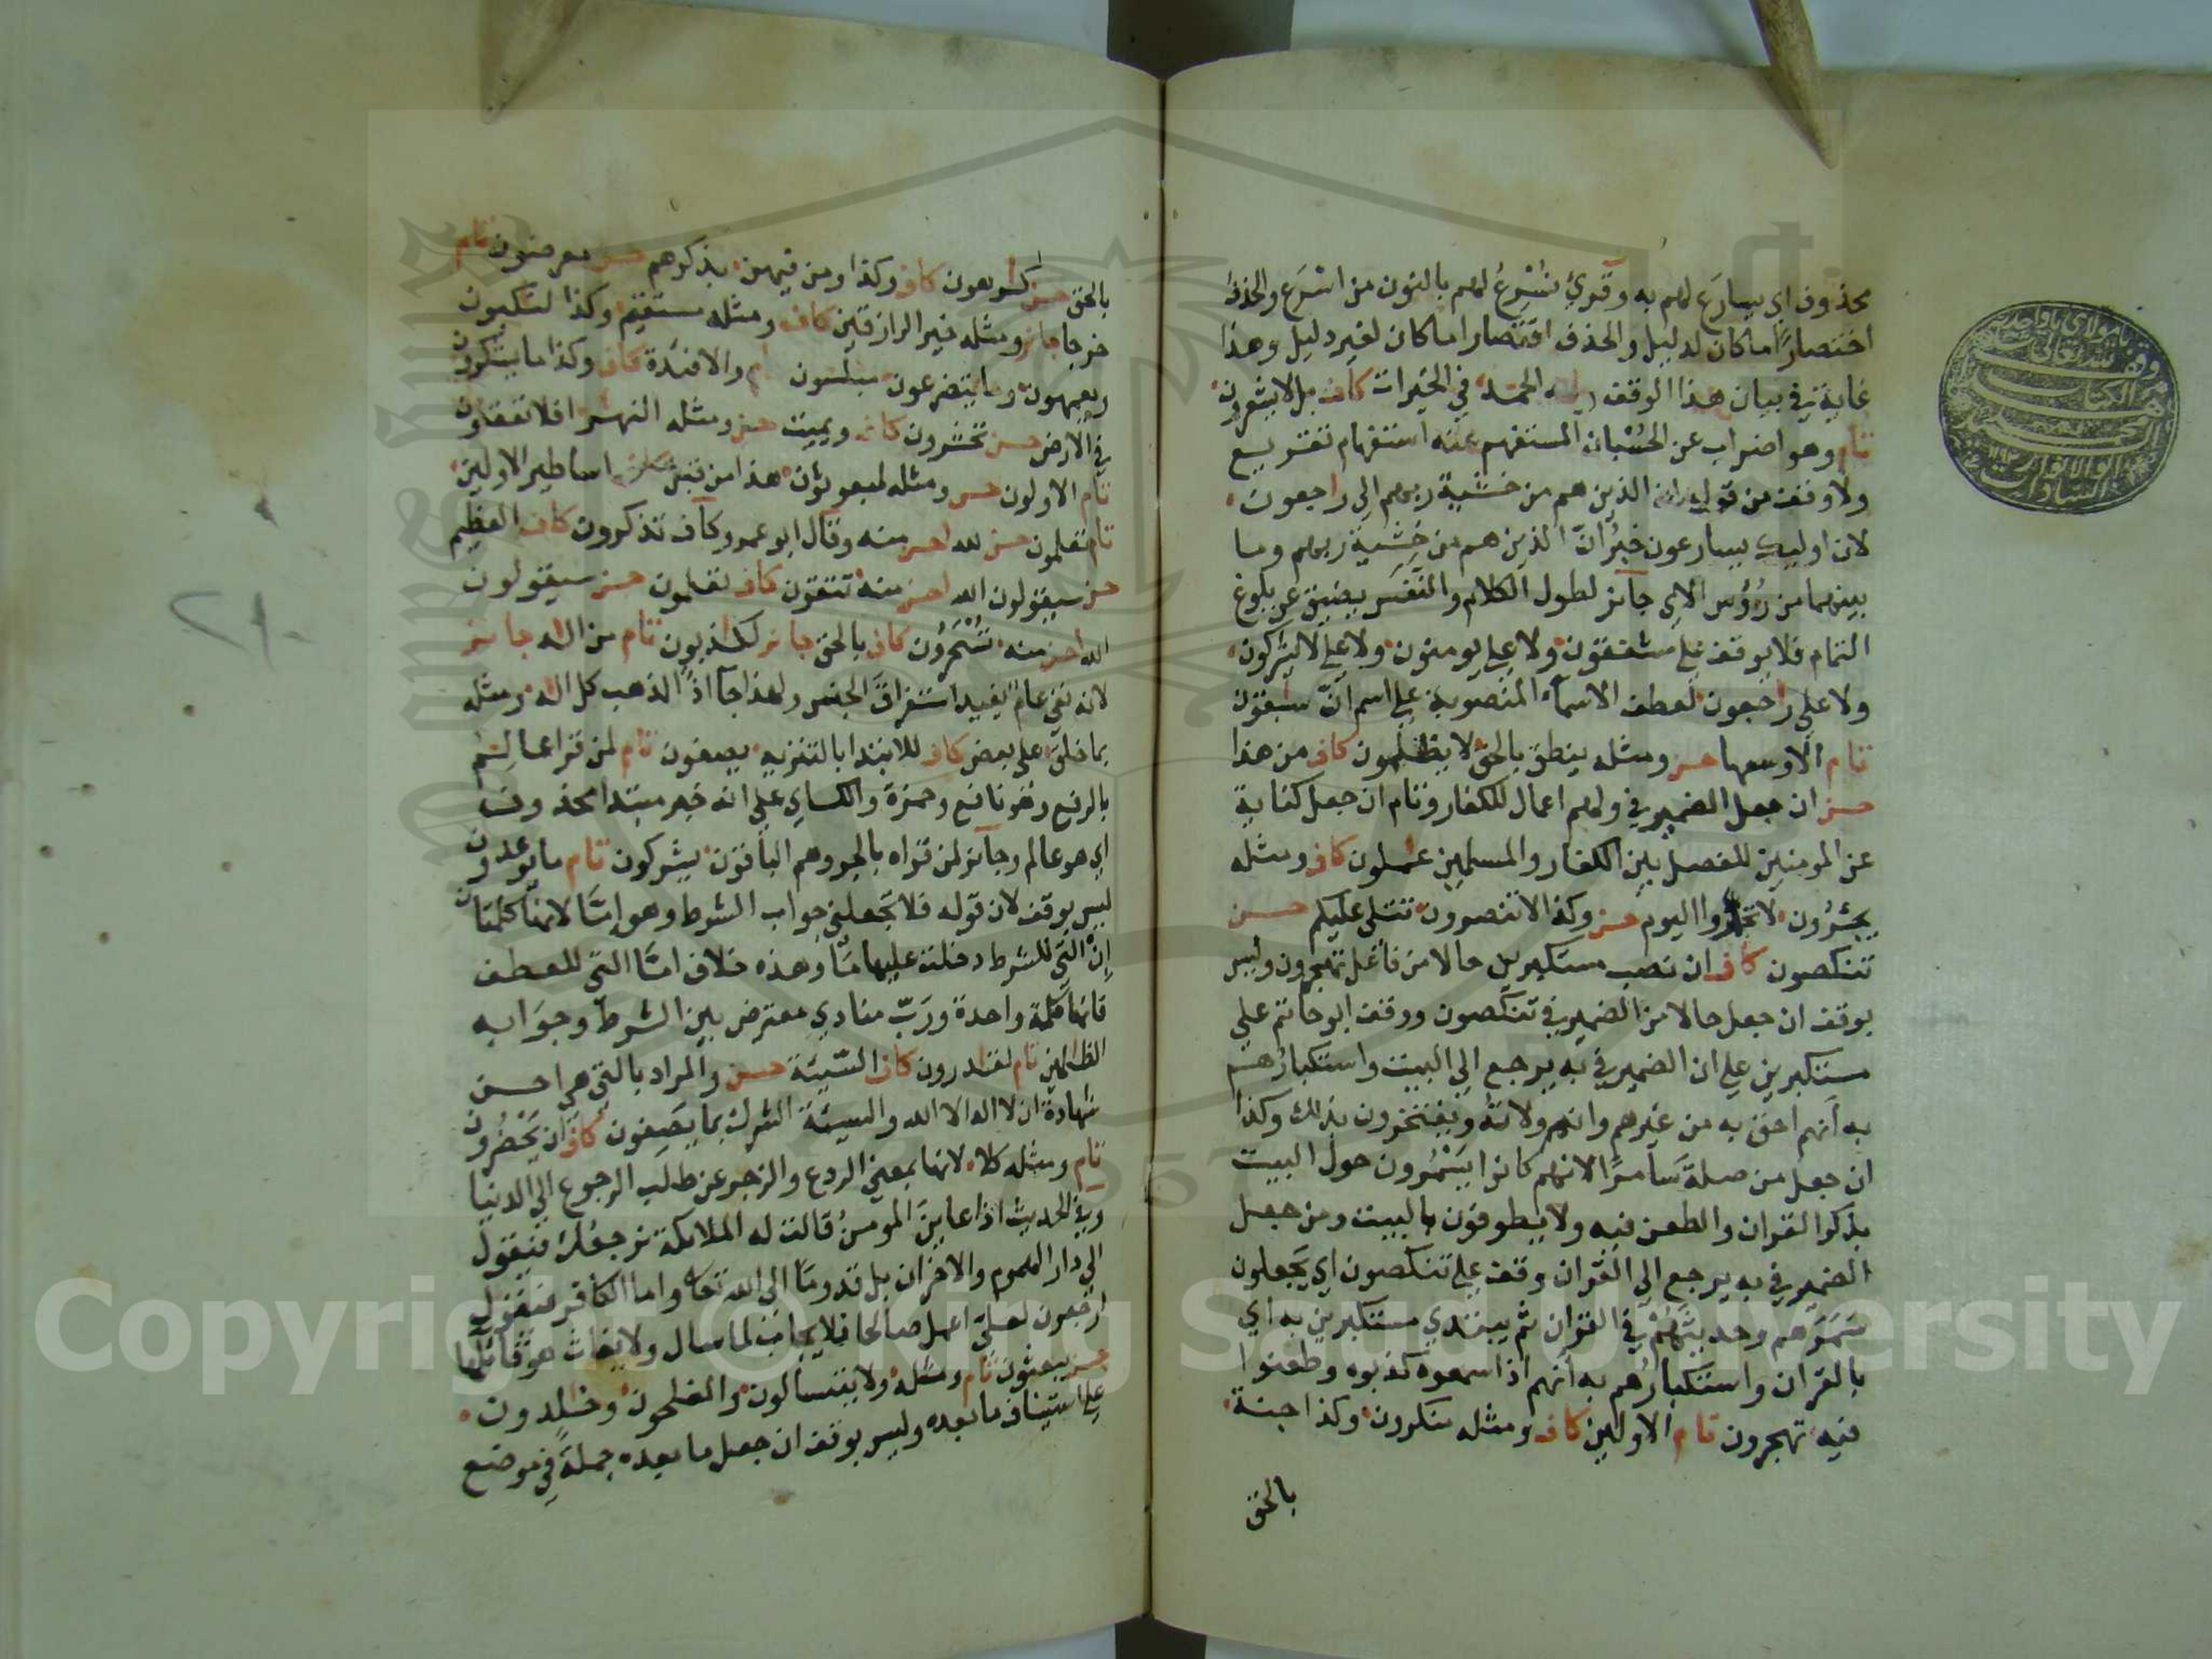 محذوف اي يسارَع لهم به وقري نُسْرِعُ لهم بالنون من اسْرَع والحذف
اختصارًا ما كان لدليل والحذف اقتصارا ما كان لغير دليل وهذا
غاية في بيان هذا الوقف ولله الحمد في الخيرات كاف بل لا يشعرون
تام وهو اضراب عن الحُسْبان المستفهم عنه استفهام تقريع
ولا وقف من قوله ان الذين هم من خشية ربهم الي راجعون
لان اوليك يسارعون خبرُ انّ الذين هم من خشية ربهم وما
بينهما من رؤس الاي جايز لطول الكلام والنفَس يضيق عن بلوغ
التمام فلا يوقف علي مشفقون ولا علي يومنون ولا علي لا يشركون
ولا علي راجعون لعطف الاسمآء المنصوبة علي اسم انّ سبقون
تام الا وسعها حسن ومثله ينطق بالحق لا يظلمون كاف من هذا
حسن ان جعل الضمير في ولهم اعمال للكفار وتام ان جعل كناية
عن المومنين للفصل بين الكفار والمسلمين عملون كاف ومثله
يجئرون لا تجئروا اليوم حسن وكذا لا تنصرون تتلي عليكم حسن
تنكصون كاف ان نصب مستكبرين حالا من فاعل تهجرون وليس
بوقف ان جعل حالا من الضمير في تنكصون ووقف ابو حاتم علي
مستكبرين علي ان الضمير في به يرجع الي البيت واستكبارُهم
به انهم احق به من غيرهم وانهم ولاته ويفتخرون بذلك وكذا
ان جعل من صلة سَامرًا لانهم كانوا يَسْمُرون حول البيت
بذكر القران والطعن فيه ولا يطوفون بالبيت ومن جعل
الضمير في به يرجع الي القران وقف علي تنكصون اي يجعلون
سَمَرَهم وحديثَهُمْ في القران ثم يبتدي مستكبرين به اي
بالقران واستكبارُهم به انهم اذا سمعوه كذبوه وطعنوا
فيه تهجرون تام الاولين كاف ومثله منكرون وكذا جنة
بالحق
بالحق حسن كرهون كاف وكذا ومن فيهن بذكرهم حسن معرضون تام
خرجا جايز ومثله خير الرازقين كاف ومثله مستقيم وكذا لنكبون
ويعمهون وما يتضرعون مبلسون تام والافئدة كاف وكذا ما يشكرون
في الارض حسن تحشرون كاف ويميت حسن ومثله النهار افلا تعقلون
تام الاولون حسن ومثله لمبعوثون هذا من قبل اساطير الاولين
تام تعلمون حسن لله احسن منه وقال ابو عمرو كاف تذكرون كاف العظيم
حسن سيقولون الله احسن منه تتقون كاف تعلمون حسن سيقولون
الله احسن منه تُسْحَرُون كاف بالحق جايز لكاذبون تام من اله جايز
لانه نفي عام يفيد استغراق الجنس ولهذا جآ اذًا لذهب كل اله ومثله
بما خلق علي بعض كاف للابتدا بالتنزيه يصفون تام لمن قرا عالمُ
بالرفع وهو نافع وحمزة والكساي علي انه خبر مبتدا محذوف
اي هو عالم وجايز لمن قراه بالجر وهم الباقون يشركون تام ما يوعدون
ليس بوقف لان قوله فلا تجعلني جواب الشرط وهو امَّا لانها كلمتان
إِنْ التي للشرط دخلت عليها مَا وهذه خلاف امَّا التي للعطف
فانها كلمة واحدة ورَبّ منادي معترض بين الشرط وجوابه
الظالمين تام لقادرون كاف السّيئة حسن والمراد بالتي هي احسن
شهادة ان لا اله الا الله والسيئة الشرك بما يَصِفون كاف ان يَحْضُرون
تام ومثله كلا لانها بمعني الردع والزجر عن طلب الرجوع الي الدنيا
وفي الحديث اذا عاينَ المومنُ قالت له الملائكة نرجعُك فيقول
الي دار الهموم والاحزان بل قدومًا الي الله تعالي واما الكافر فيقول
ارجعون لعليّ اعمل صالحا فلا يجاب لما سال ولا يغاث هو قائلها
حسن يبعثون تام ومثله ولا يتسالون والمفلحون وخلدون
علي استيناف ما بعده وليس بوقف ان جعل ما بعده جملةً في موضع
Copyright © King Saud University